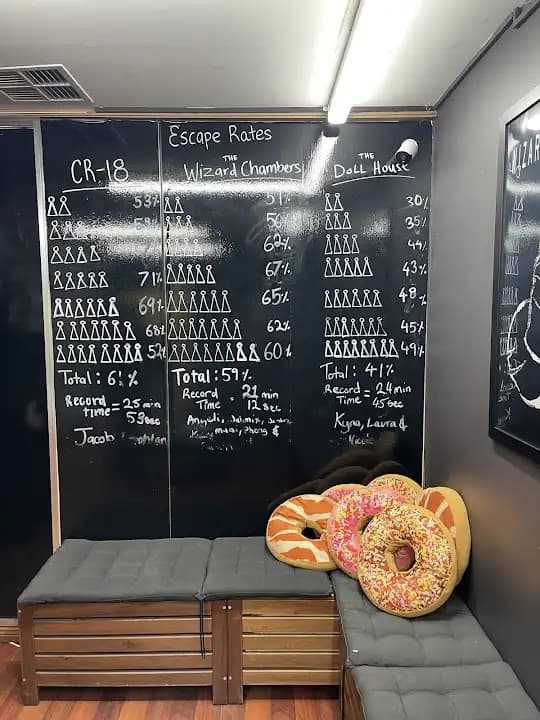 Escape Rates
CR-18
53%
71%
69%
68%
52%
Total: 61%
Record Time = 25 min 53 sec
Jacob
THE
Wizard Chambers
51%
56%
62%
67%
65%
62%
60%
Total: 59%
Record Time = 21 min 12 sec
THE
Doll House
30%
35%
44%
43%
48%
45%
49%
Total: 41%
Record Time = 24 min 45 sec
Kyna, Laura &
Nicole